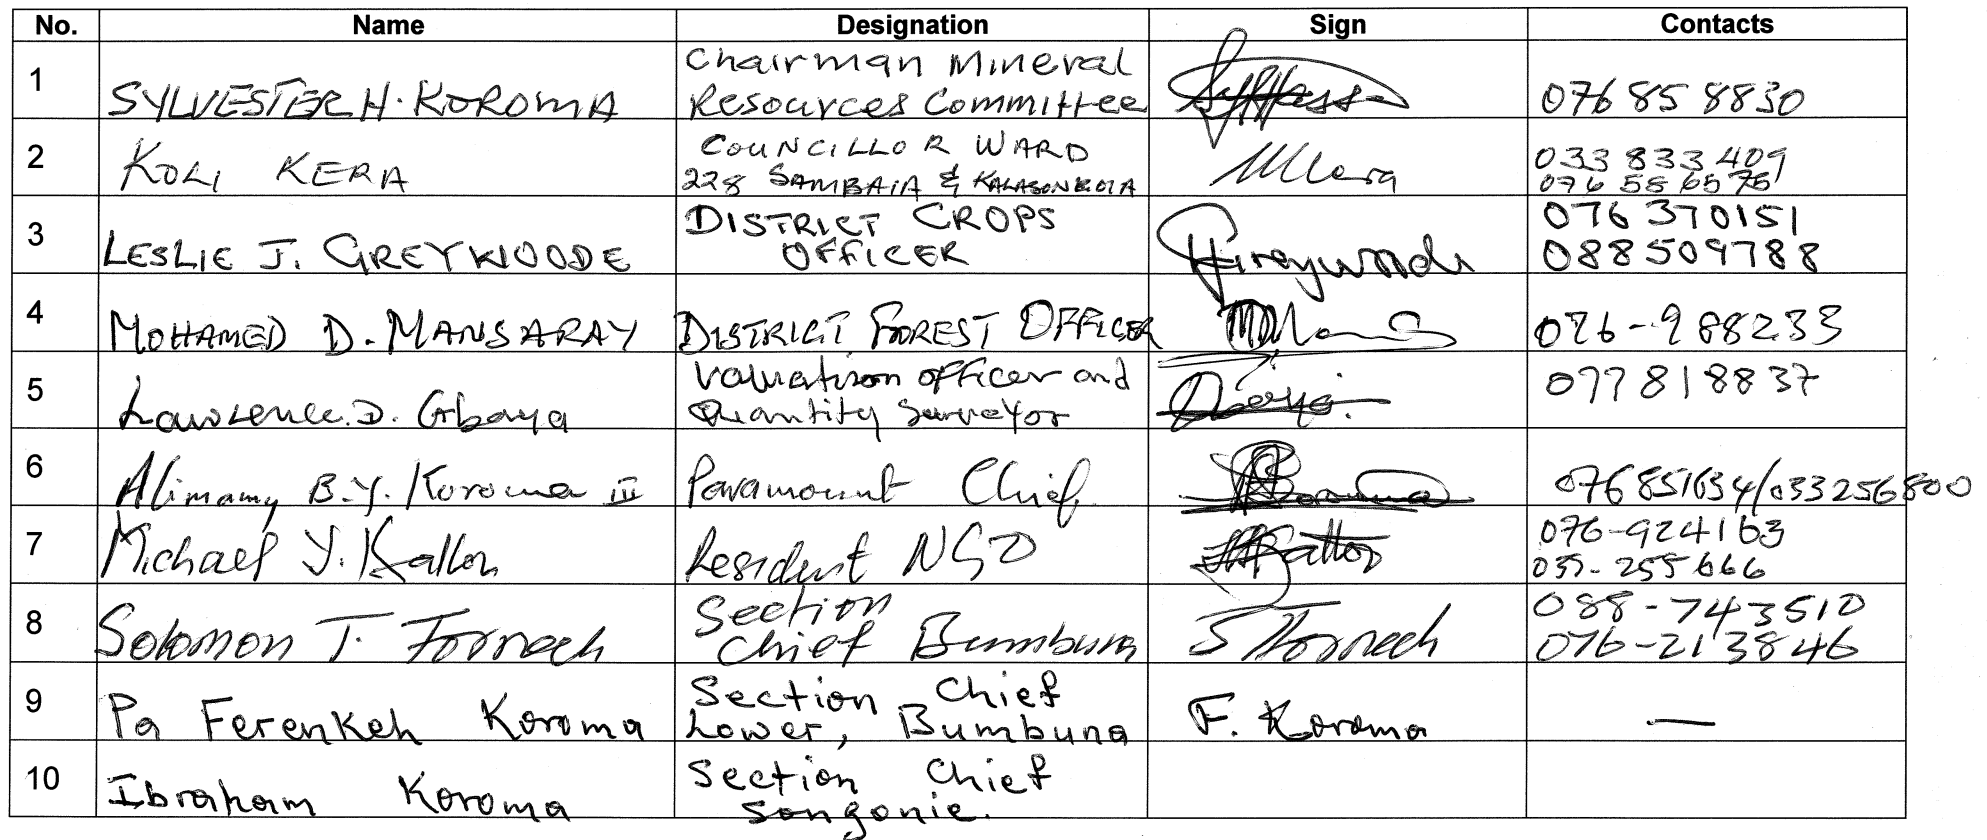 No. Name Designation Sign Contacts
1 SYLVESTER H. KOROMA Chairman Mineral Resources Committee 076 85 8830
2 KOLI KERA COUNCILLOR WARD 228 SAMBAIA & KALASONGOIA 033 833 409
3 LESLIE J. GREYWOODE DISTRICT CROPS OFFICER Greywoode 076 370151 088 509788
4 MOHAMED D. MANSARAY DISTRICT FOREST OFFICER 076-988233
5 Lawrence. D. Gbaya Valuation officer and Quantity Surveyor 077818837
6 Alimamy B.Y. Koroma III Paramount Chief Koroma 076851634/033256800
7 Michael Y. Kallon Resident NGO Kallon 076-924163
8 Solomon T. Fornach Section Chief Bumbuna S T Fornach 088-743510 076-213846
9 Pa Ferenkeh Koroma Section Chief Lower, Bumbuna F. Koroma —
10 Ibraham Koroma Section Chief Songonie.